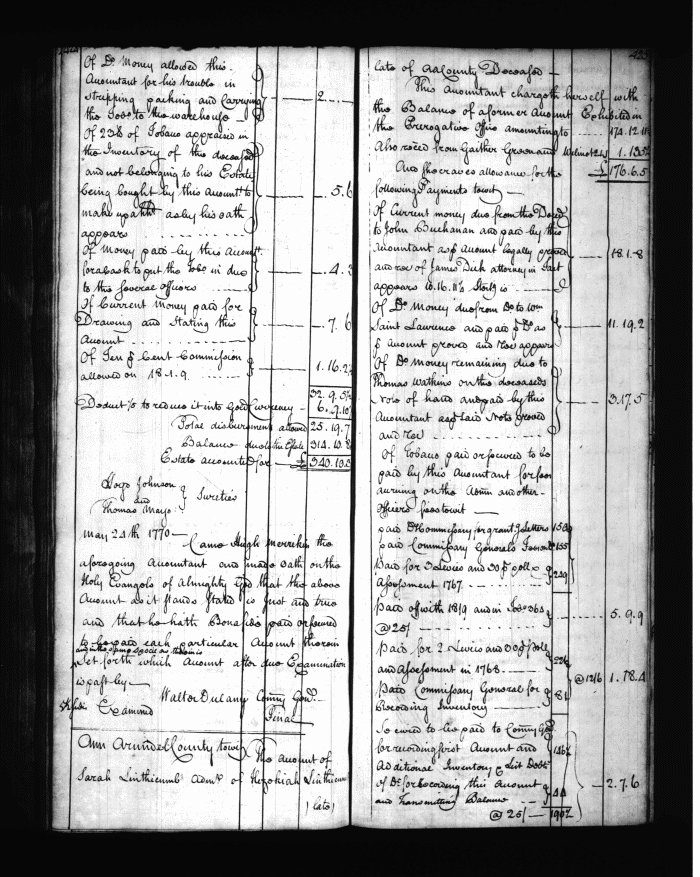 Of Do. Money allowed this
Accountant for his trouble in
stripping packing and Carrying
the Tobo. to the warehouse
2
Of 238 of Tobacco appraised in
the Inventory of the deceased
and not belonging to his Estate
being bought by this Accountt. to
make up as by his oath
appears
5.6
Of Money paid by this Accountt.
for a cask to put the Tobo. in due
to the several officers
4.3
Of Current Money paid for
Drawing and Stating this
Account
7.6
Of Ten p Cent Commission
allowed on 18.1.9.
1.16.2
32.9.5
Deduct 1/5 to reduce it into Gold Currency
6.9.10
Total disbursement allowed 25.19.7
Balance due to the Estate 314.10.8
Estate accounted for £ 340.10.3
Johnson
and
Thomas Mayo
Sureties
May 24th 1770
Came Hugh Merreken the
aforegoing Accountant and made oath on the
Holy Evangels of Almighty God that the above
Account as it stands Stated is Just and true
and that he hath Bonafide paid or secured
to be paid each particular Account therein
and in the same specie as therein is
Set forth which Account after due Examination
is past by
Walter Dulany Commy. Genl.
Examined
Final
Ann Arundel County towit The account of
Sarah Linthicumb Admx. of Hezekiah Linthicum
(late)
late of AaCounty Deceased
This Accountant chargeth herself with
the Balance of a former Account Exhibited in
the Prerogative Office amounting to 174.12.11
Also reced from Gaither Green and 1.13.
£ 176.6.5
And she craves allowance for the
following Payments towit
Of Current money due from the Deced
to John Buchanan and paid by this
Accountant as p Account legally proved
and rec of James Dick attorney in fact
appears 10.16.11½ Sterlg is
18.1.8
Of Do. Money due from Do to Wm
Saint Lawrence and paid p Do. as
p Account proved and Rec appears
11.19.2
Of Do. Money remaining due to
Thomas Watkins on the deceaseds
note of hand and paid by this
Accountant as p said Note proved
and Rec
3.17.5
Of Tobacco paid or secured to be
paid by this Accountant for fees
accruing on the Admn and other
officers fees towit
paid D Commissary for grant of Letters 150
paid Commissary Generals 155
Paid for 3 Levies and 30 p poll &
Assessment 1767
220
Paid off with 181/9 and in Tobo. 360
@ 25/
5.9.9
Paid for 2 Levies and 30 p pole
and Assessment in 1768
226
Paid Commissary General for
Recording Inventory
81
@ 12/6 1.18.4
Secured to be paid to Commy. Genl.
for recording first Account and
Additional Inventory & List Debts
146
Of Do. for Recording this Account
and Transmitting Balance
44
2.7.6
@ 25/ 190